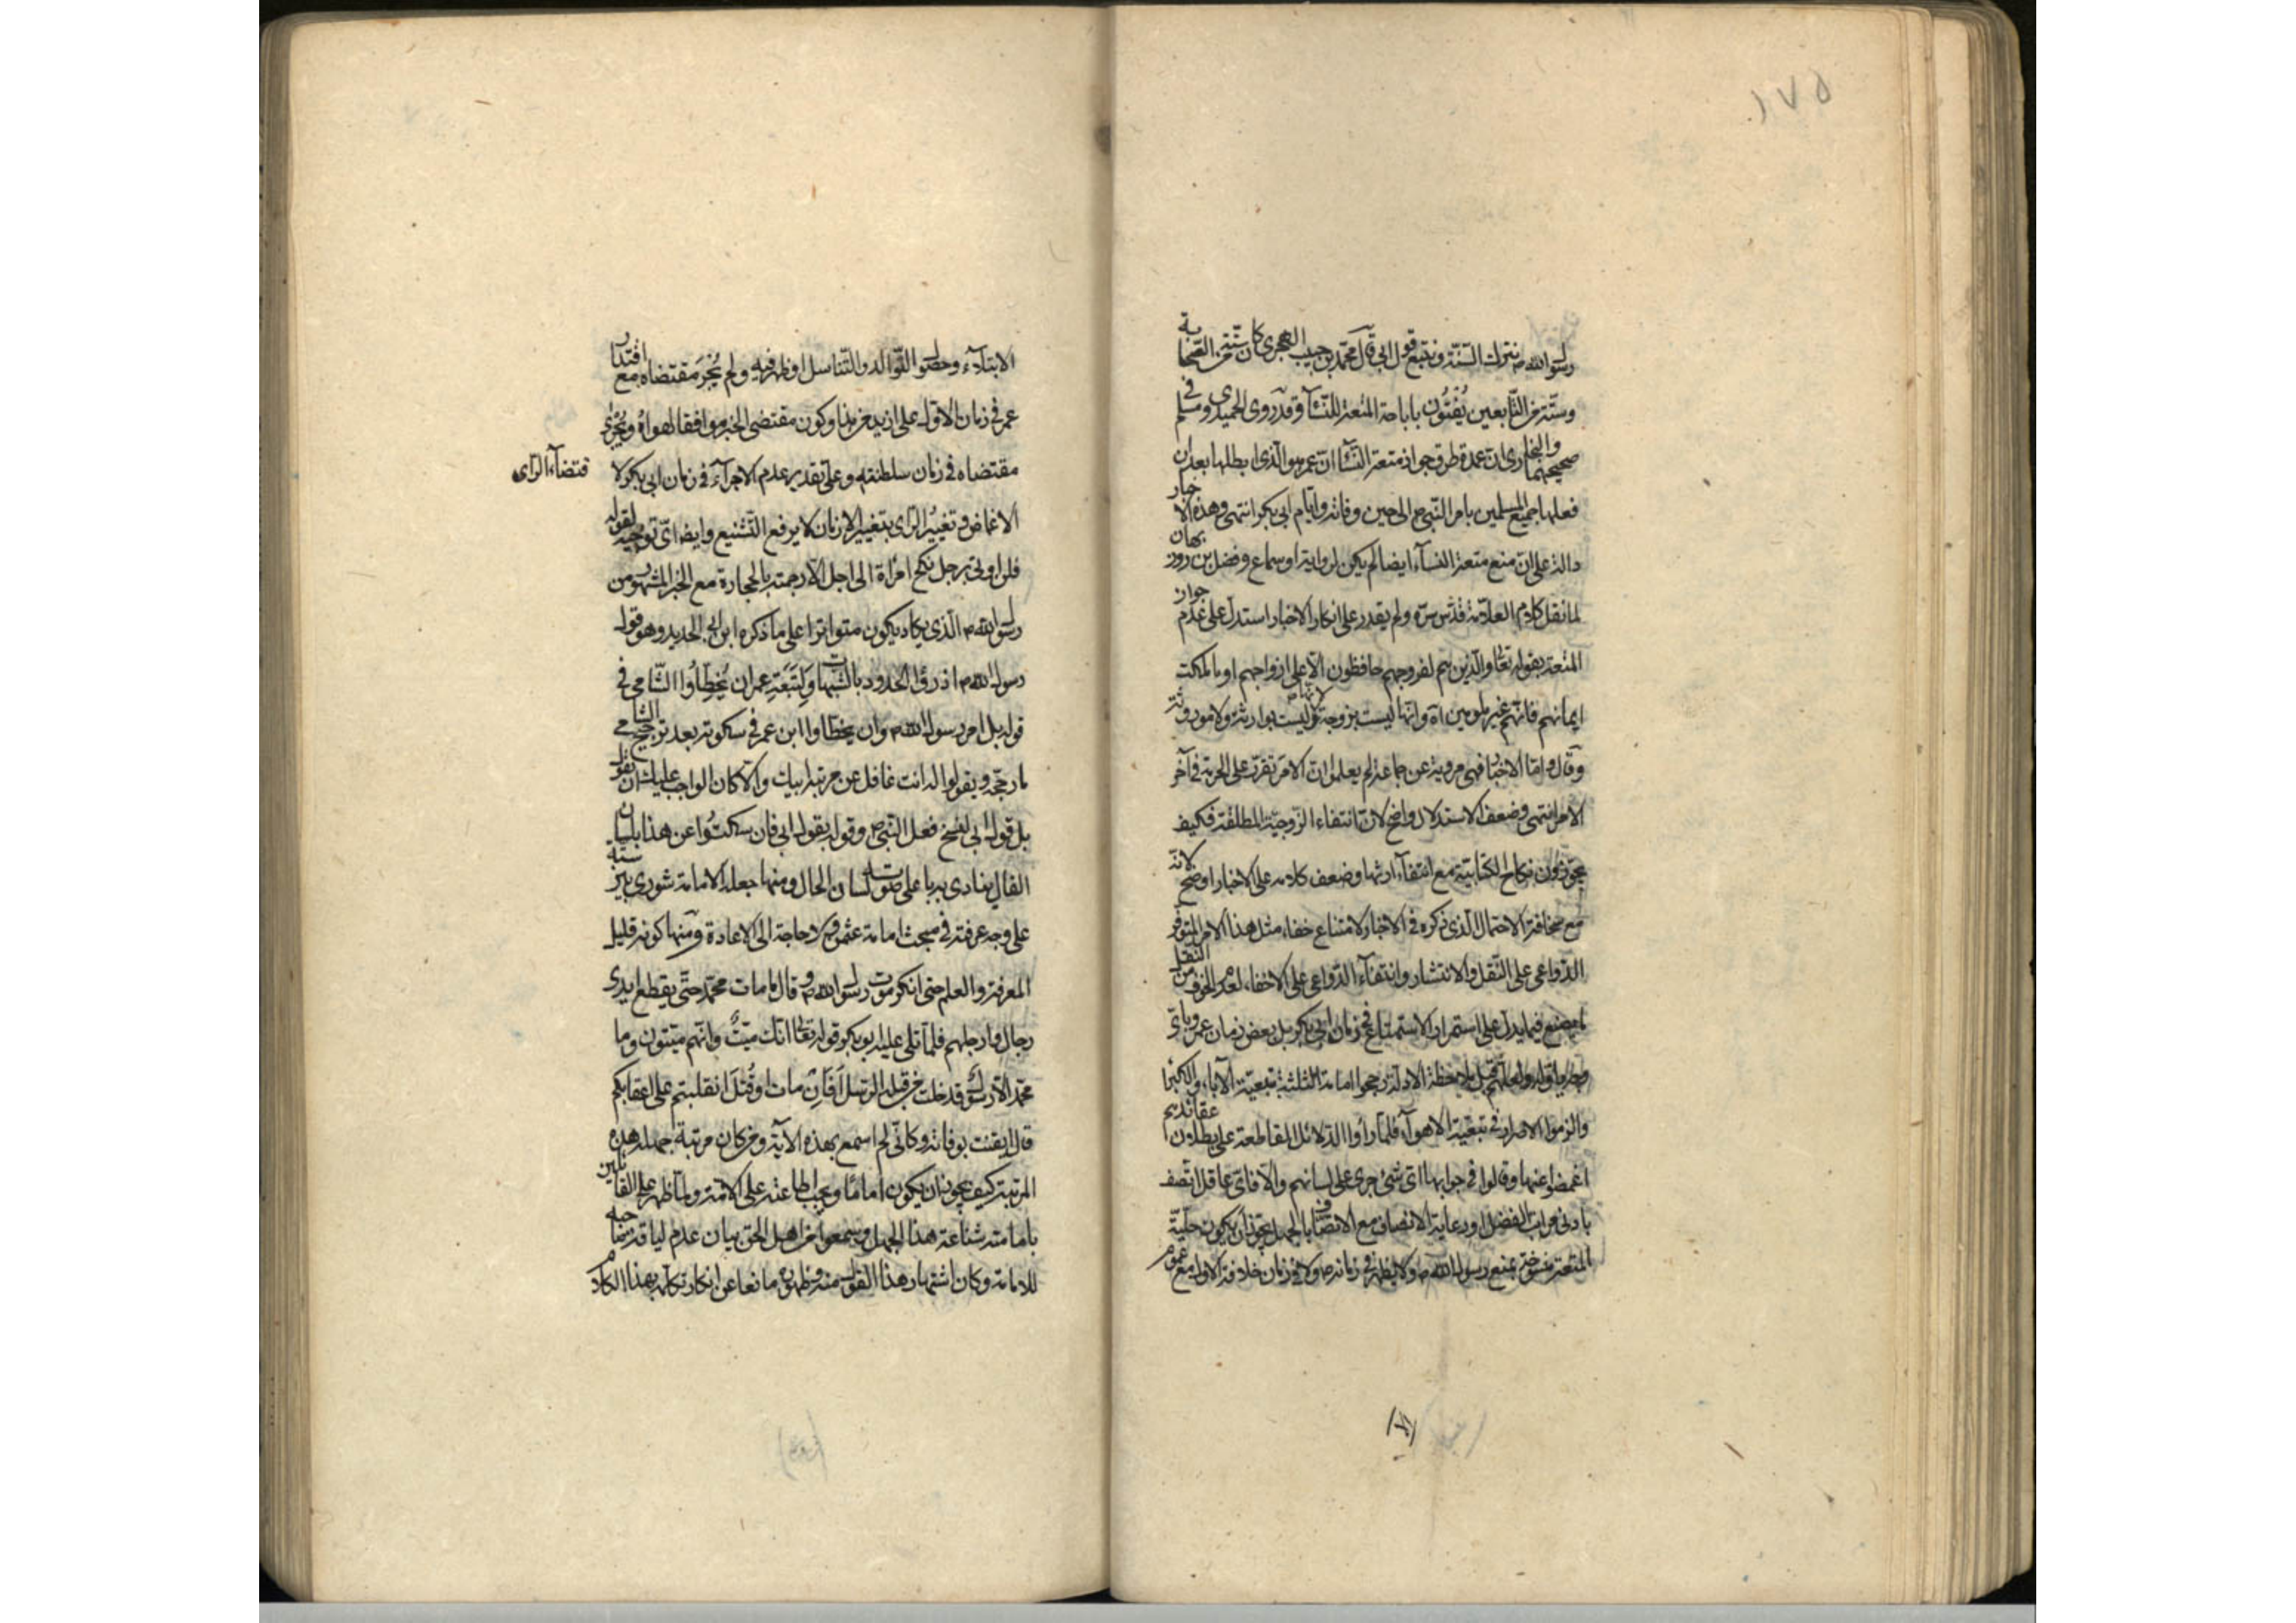 ١٧٥
رسول الله ص نترك السنة ونتبع قول ابي قال محمد بن حبيب كان ستة من الصحابة
وستة من التابعين يُفْتُون باباحة المتعة للنسآء وقد روى الحميدي ومسلم في
صحيحيهما والبخاري ان عدة طرق جواز متعة النسآء ان عمر هو الذي ابطلها بعد ان
فعلها جميع المسلمين بامر النبي ص الى حين وفاته وايام ابي بكر انتهى وهذه الاخبار
دالة على ان منع متعة النسآء ايضا لم يكن لرواية او سماع وفضل بن روزبهان
لما نقل كلام العلامة قدس سره ولم يقدر على انكار الاخبار استدل على عدم جواز
المتعة بقوله تعالى والذين هم لفروجهم حافظون الا على ازواجهم او ما ملكت
ايمانهم فانهم غير ملومين وانها ليست بزوجة لانها ليست بوارثة ولا موروثة
وقال واما الاخبار فهي مروية عن جماعة لم يعلموا ان الامر تقرر على الحرمة في آخر
الامر انتهى وضعف الاستدلال واضح لان انتفاء الزوجية المطلقة فكيف
يجوزون نكاح الكتابية مع انتفآء ارثها وضعف كلامه على الاخبار اوضح لانه
مع سخافة الاحتمال الذي ذكره في الاخبار لامتناع خفاء مثل هذا الامر المتوفر
الدواعي على النقل والانتشار وانتفآء الدواعي على الاخفاء لعدم الخوف من النقل
ما يصنع فيما يدل على استمرار الاستمتاع في زمان ابي بكر بل بعض زمان عمر وباي
قبل ملاحظة الادلة رجحوا امامة الثلثة بتبعية الآباء والكبراء
والزموا الاصرار في تبعية الاهوآء فلما رأوا الدلائل القاطعة على بطلان عقائدهم
اغمضوا عنها وقالوا في جوابها اي شئ جرى على لسانهم والا فاي عاقل اتصف
بادنى مراتب الفضل ورعاية الانصاف مع الاتصاف بالجهل يجوز ان يكون حلية
المتعة منسوخة بمنع رسول الله ص ولا يظهر في زمانه ص ولا في زمان خلافة الاول مع عموم
الابتلآء وحصول التوالد والتناسل او ظهر فيه ولم يُجْرَ مقتضاه مع اقتدار
عمر في زمان الاول على ازيد من هذا وكون مقتضى الخبر موافقا لهواه ويُجْرَى
مقتضاه في زمان سلطنته وعلى تقدير عدم الاجرآء في زمان ابي بكر لا
قتضآء الراى
الاغماض وتغيير الراى بتغيير الازمان لا يرفع التشنيع وايضا اي توجيه لقوله
فلن اوتي برجل نكح امرأة الى اجل الا رجمته بالحجارة مع الخبر المشهور من
رسول الله ص الذي يكاد يكون متواترا على ما ذكره ابن ابي الحديد وهو قول
رسول الله ص ادرؤا الحدود بالشبهات ولتبعة عمر ان يُخطِّأوا الشامي في
قوله بل امر رسول الله ص وان يخطأوا ابن عمر في سكوته بعد ترجيح الشامي
ما رجحه ويقولوا له انت غافل عن مرتبة ابيك والا كان الواجب عليك ان تقول
بل قول ابي لنسخ فعل النبي ص وقوله بقول ابي فان سكتوا عن هذا بلسان
القال ينادي به باعلى صوت لسان الحال ومنها جعله الامامة شورى بين ستة
على وجه عرفته في مبحث امامة عثمان فلا حاجة الى الاعادة ومنها كونه قليل
المعرفة والعلم حتى انكر موت رسول الله ص وقال ما مات محمد حتى يقطع ايدي
رجال وارجلهم فلما تلى عليه ابو بكر قوله تعالى انك ميتٌ وانهم ميتون وما
محمد الا رسول قد خلت من قبله الرسل أفَإن مات او قُتل انقلبتم على اعقابكم
قال ايقنت بوفاته وكاني لم اسمع بهذه الآية ومن كان مرتبة جهله هذه
المرتبة كيف يجوز ان يكون اماما ويجب اطاعته على الامة ولما ظهر على القائلين
بامامته شناعة هذا الجهل وسمعوا من اهل الحق بيان عدم لياقة صاحبه
للامامة وكان اشتهار هذا القول منه وظهوره مانعا عن انكار تكلمه بهذا الكلام